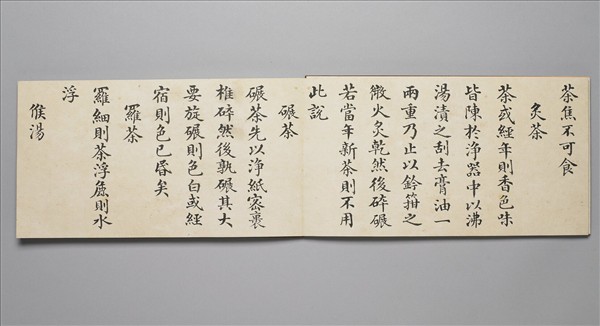 茶焦不可食
炙茶
茶或經年則香色味
皆陳於淨器中以沸
湯漬之刮去膏油一
兩重乃止以鈐箝之
微火炙乾然後碎碾
若當年新茶則不用
此說
碾茶
碾茶先以淨紙密裹
椎碎然後孰碾其大
要旋碾則色白或經
宿則色已昏矣
羅茶
羅細則茶浮麁則水
浮
候湯